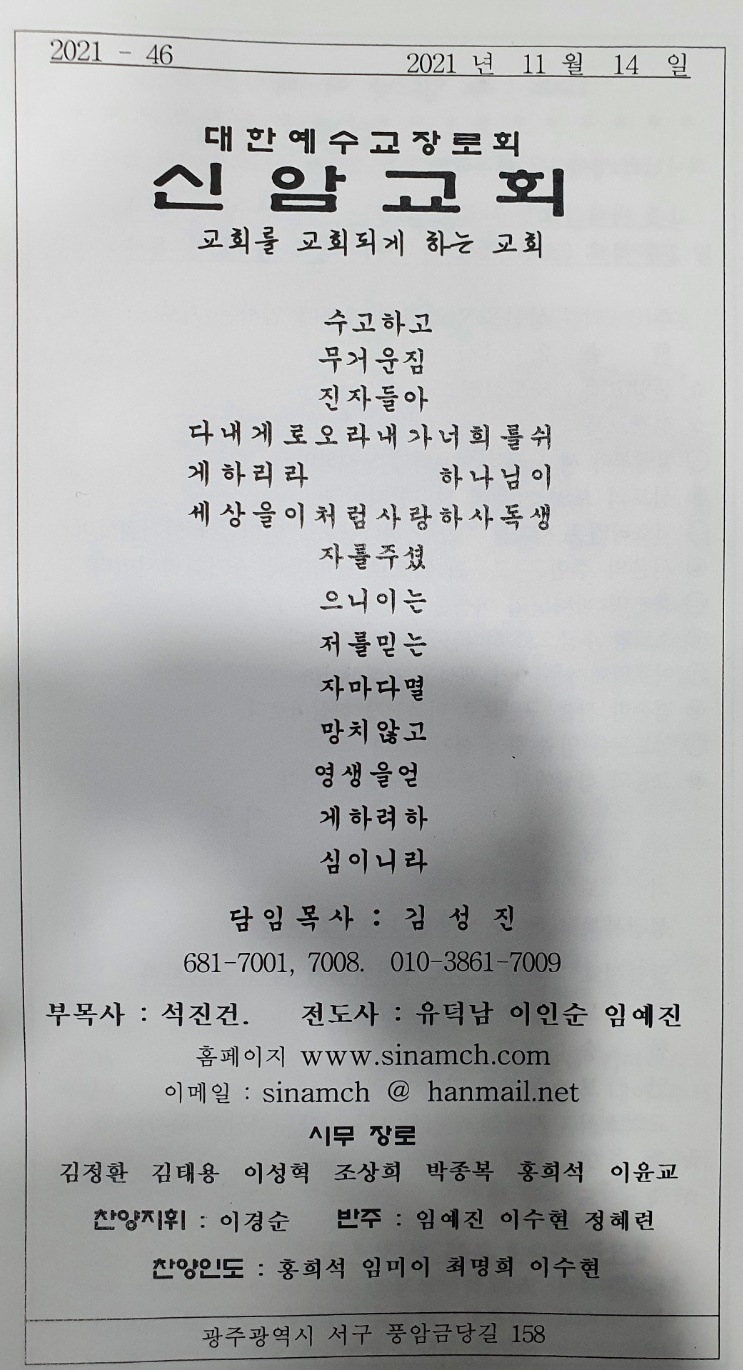 2021 - 46
2021 년 11 월 14 일
대한예수교장로회
신암교회
교회를 교회되게 하는 교회
수고하고
무거운짐
진자들아
다내게로오라내가너희를쉬
게하리라 하나님이
세상을이처럼사랑하사독생
자를주셨
으니이는
저를믿는
자마다멸
망치않고
영생을얻
게하려하
심이니라
담임목사 : 김 성 진
681-7001, 7008. 010-3861-7009
부목사 : 석진건. 전도사 : 유덕남 이인순 임예진
홈페이지 www.sinamch.com
이메일 : sinamch @ hanmail.net
시무 장로
김정환 김태용 이성혁 조상희 박종복 홍희석 이윤교
찬양지휘 : 이경순 반주 : 임예진 이수현 정혜련
찬양인도 : 홍희석 임미이 최명희 이수현
광주광역시 서구 풍암금당길 158